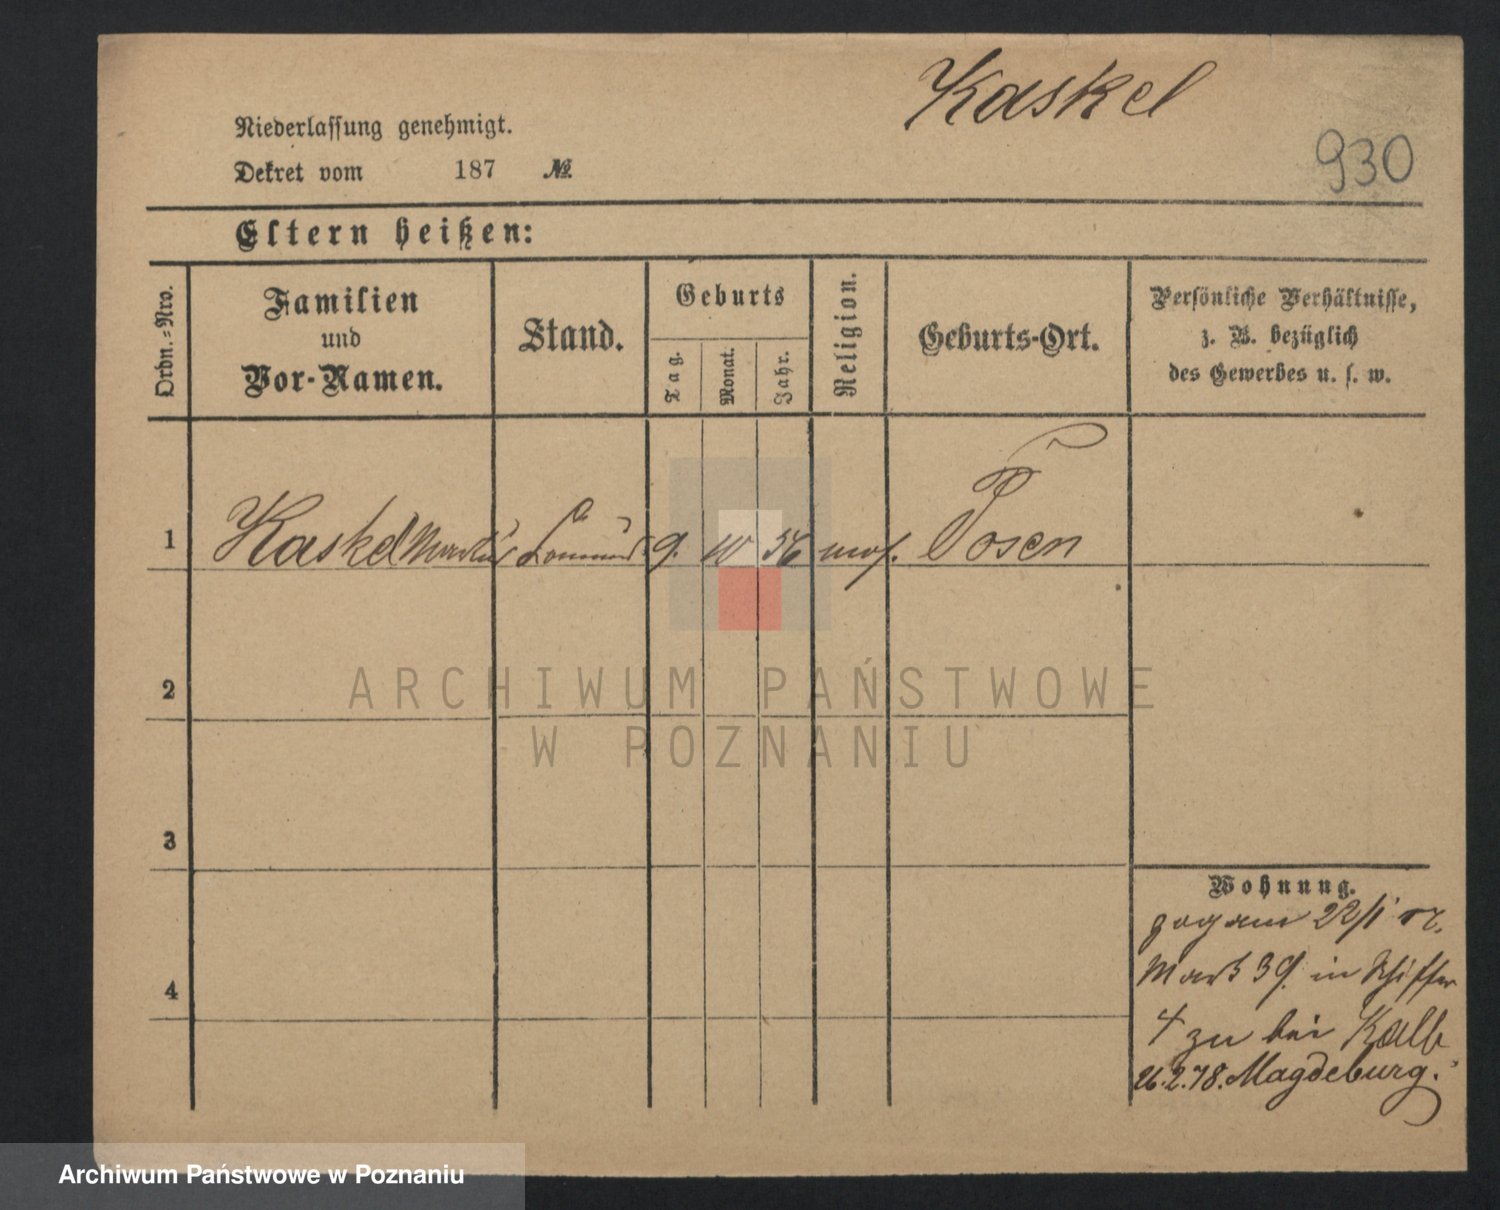 Kaskel
930
Niederlassung genehmigt.
Dekret vom 187 №
Eltern heißen:
Ordn.-Nro.
Familien
und
Vor-Namen.
Stand.
Geburts
Tag.
Monat.
Jahr.
Religion.
Geburts-Ort.
Persönliche Verhältnisse,
z. B. bezüglich
des Gewerbes u. s. w.
1 Kaskel 9. 10 56 mos. Posen
2
ARCHIWUM PAŃSTWOWE
W POZNANIU
3
4
Wohnung.
zog am 22/1
Markt 39. in Schiffer
4 zu bei Kalb
26.2.78. Magdeburg.
Archiwum Państwowe w Poznaniu